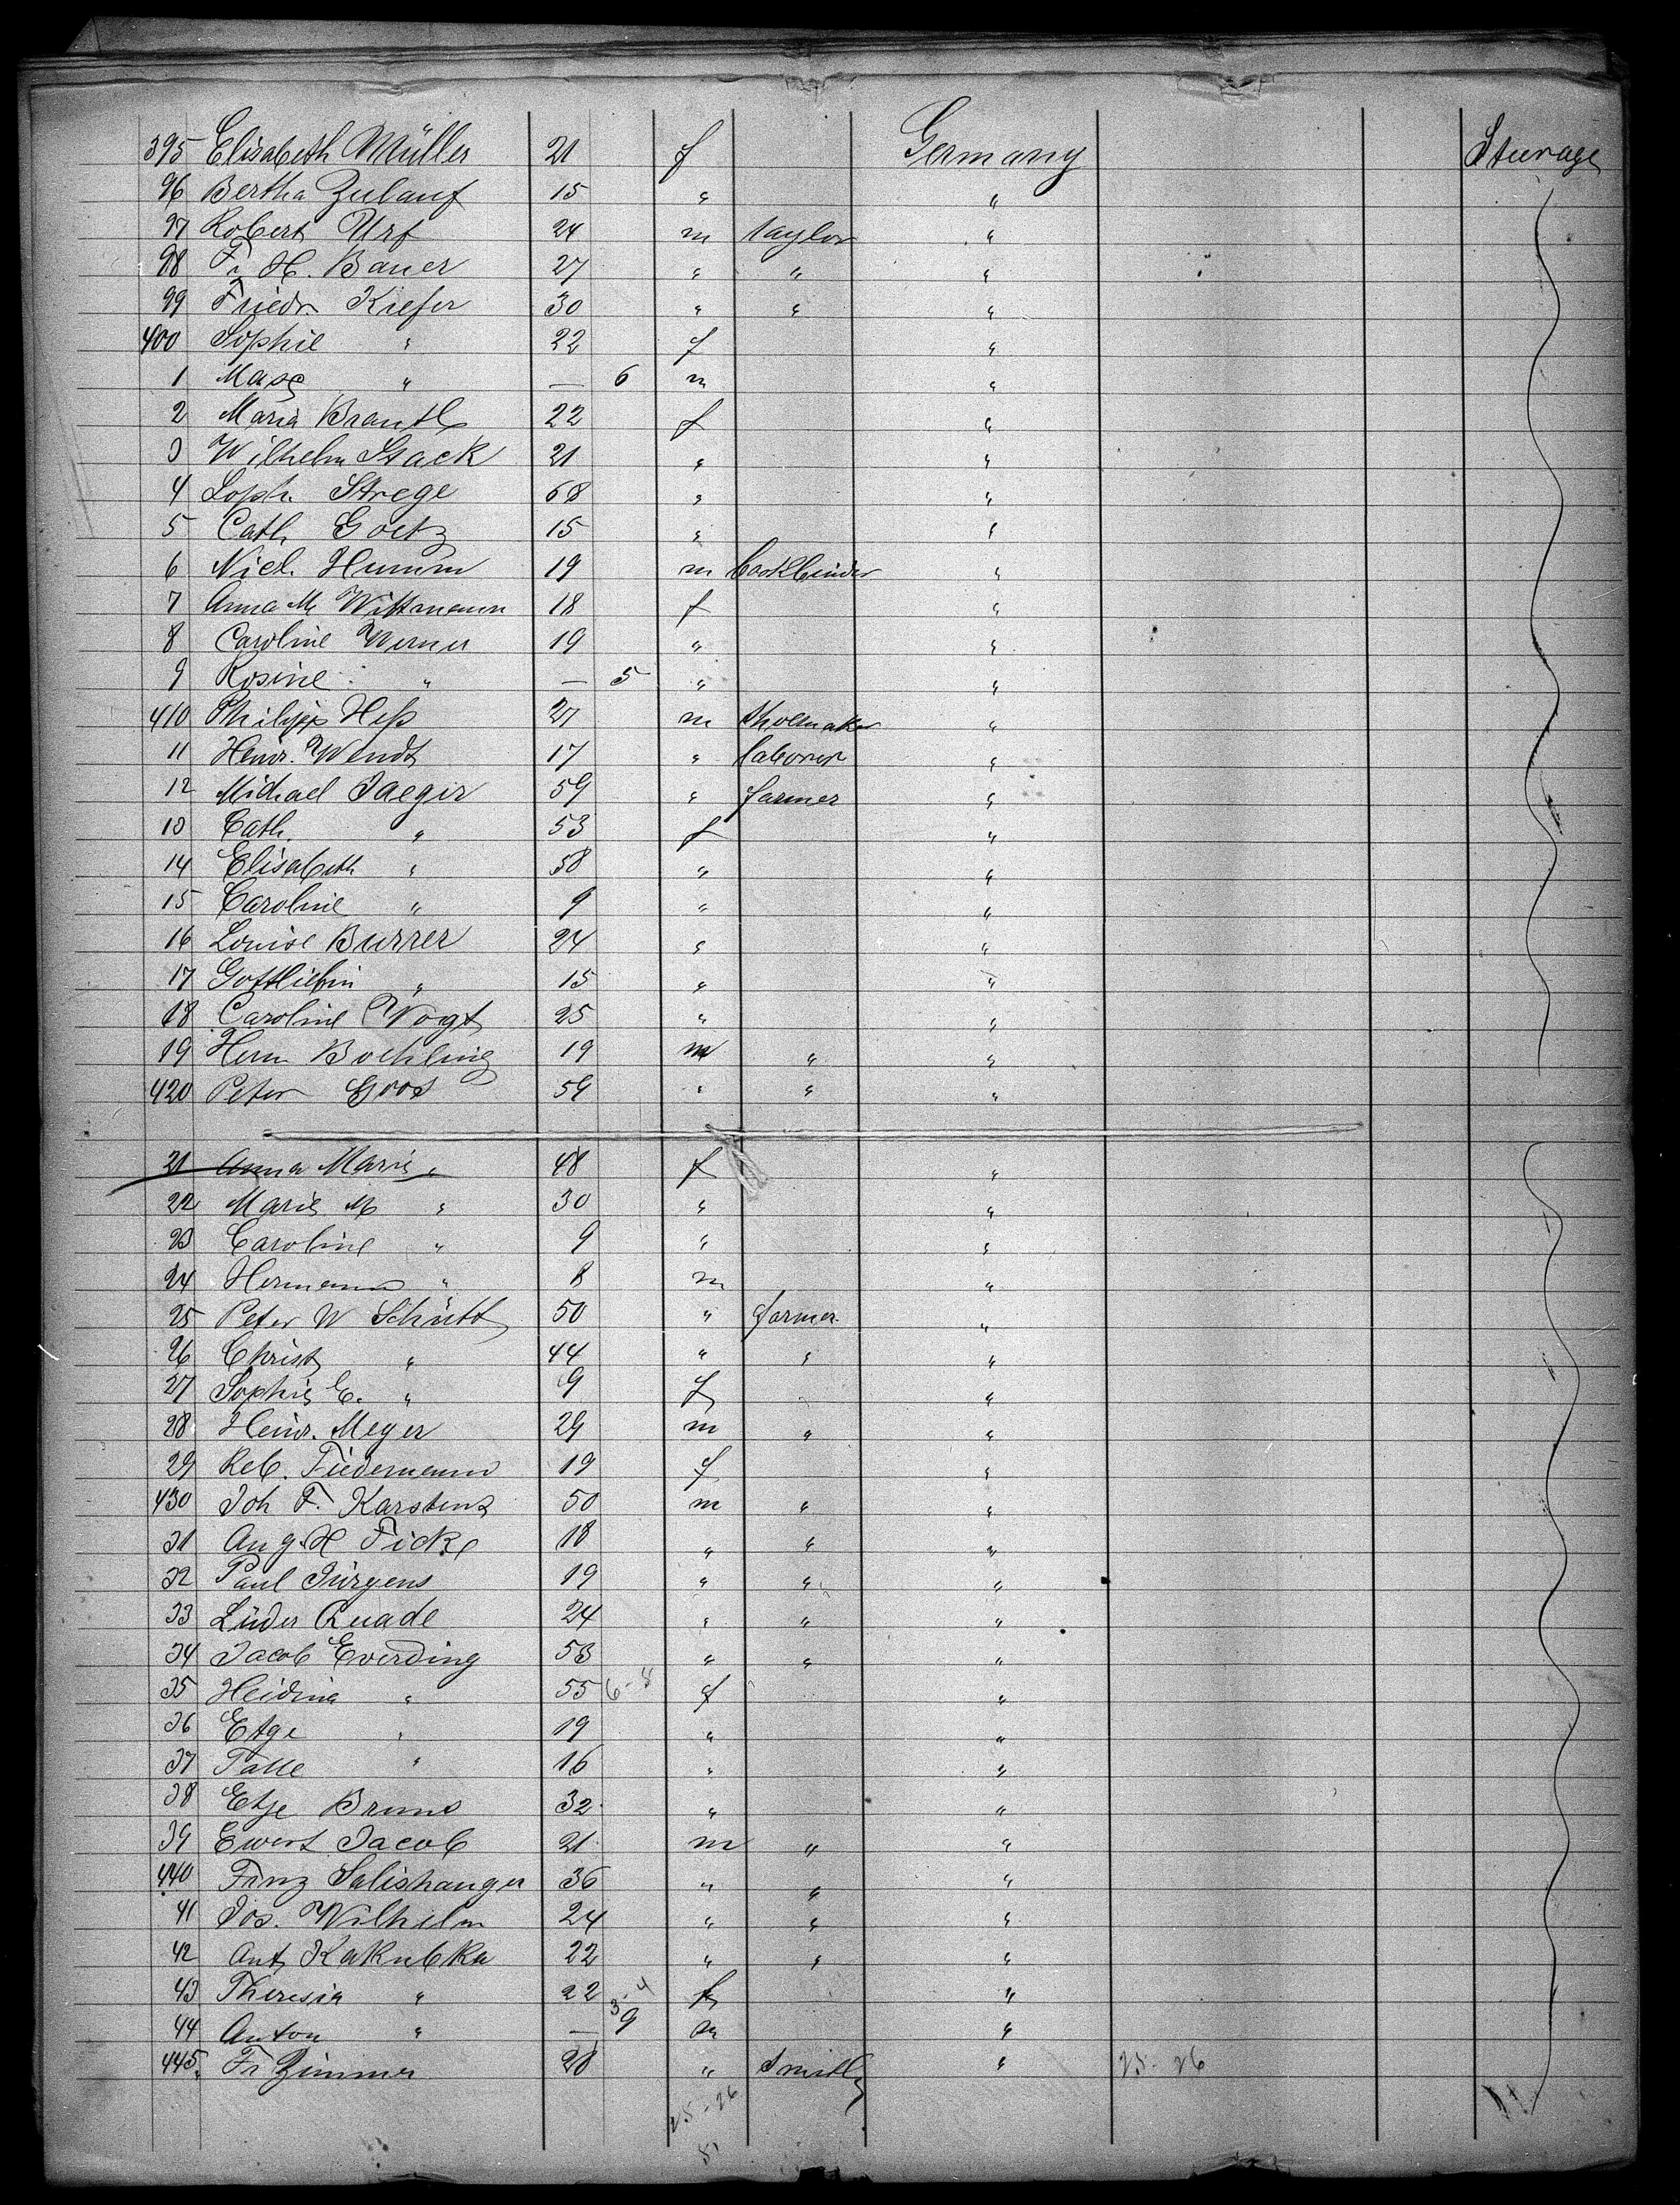 395 Elisabeth Müller 21 f Germany Steerage
96 Bertha Zulauf 15 " "
97 Robert Urf 24 m taylor "
98 Fr. H. Bauer 27 " " "
99 Friedr. Kiefer 30 " " "
400 Sophie " 22 f "
1 " — 6 m "
2 Maria 22 f "
3 Wilhelm Stack 21 " "
4 Soph. Strege 68 " "
5 Cath. Goetz 15 " "
6 Nicl. Humm 19 m bookbinder "
7 Anna M. Wittmann 18 f "
8 Caroline Werner 19 " "
9 Rosine " — 5 " "
410 Philipp Heß 27 m shoemaker "
11 Heinr. Wendt 17 " laborer "
12 Michael Jaeger 59 " farmer "
13 Cath. " 53 f "
14 Elisabeth " 58 " "
15 Caroline " 9 " "
16 Louise Burrer 24 " "
17 Gottliebin " 15 " "
18 Caroline Vogt 25 " "
19 Herm Boehling 19 m " "
420 Peter Goos 59 " " "
21 Anna Marie " 48 f "
22 Marie M " 30 " "
23 Caroline " 9 " "
24 Hermann " 8 m "
25 Peter W Schütt 50 " farmer "
26 Christ " 44 " " "
27 Sophie E. " 9 f "
28 Heinr. Meyer 29 m " "
29 Reb. Tiedemann 19 f "
430 Joh F. Karstens 50 m " "
31 Aug. H Ficke 18 " " "
32 Paul Jürgens 19 " " "
33 Lüder Quade 24 " " "
34 Jacob Everding 53 " " "
35 " 55 6-8 f "
36 Etge " 19 " "
37 " 16 " "
38 Etje Bruns 32 " "
39 Ewert Jacob 21 m " "
440 Franz 36 " " "
41 Jos. Wilhelm 24 " " "
42 Ant. Kakubka 22 " " "
43 Theresia " 22 3-4 f "
44 Anton " — 9 m "
445 Fr Zimmer 28 " Smith " 25-26
25-26